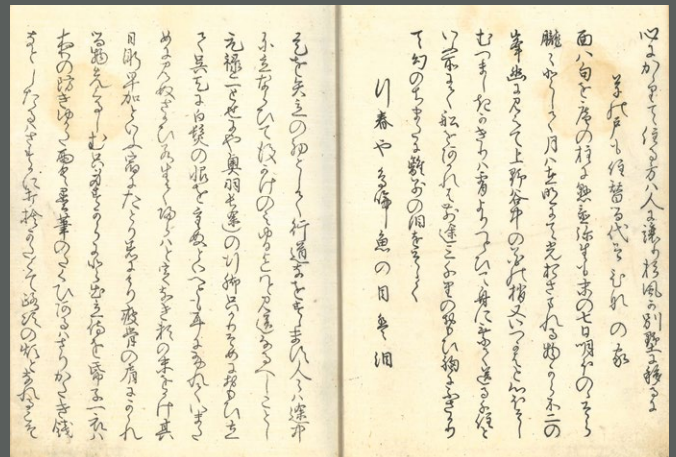 心にかゝりて住る方は人に譲り杉風か別墅に移るに
草の戸も住替る代そひなの家
面八句を庵の柱に懸置弥生も末の七日明ほのゝそら
朧々として月は在明にて光おさまれる物から不二の
峯幽に見えて上野谷中の花の梢又いつかはと心ほそし
むつましきかきりは宵よりつとひて舟に乗て送る千住と
いふ所にて船をあかれは前途三千里のおもひ胸にふさかり
て幻のちまたに離別の泪をそゝく
行春や鳥啼魚の目は泪
是を矢立の初として行道なをすゝます人々は途中
に立ならひて後かけのみゆる迄はと見送なるへしことし
元禄二とせにや奥羽長途の行脚只かりそめに思ひ立
て呉天に白髪の恨を重ぬといへとも耳にふれていまた
めに見ぬさかひ若生て帰らはと定なき頼の末をかけ其
日漸早加といふ宿にたとり着にけり痩骨の肩にかゝれ
る物先くるしむ只身すからにと出立侍を帋子一衣は
夜の防きゆかた雨具墨筆のたくひあるはさりかたき餞
なとしたるはさすかに打捨かたくて路次の煩となれるこそ